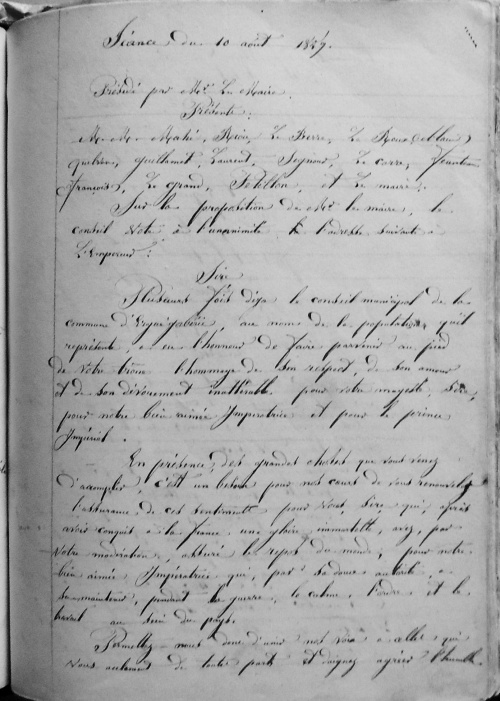 Séance du 10 août 1859.
Présidé par Mr Le Maire.
Présents.
M. M. Mahé, Riou, Le Berre, Le Roux (allain)
quelven, guillamet, Laurent, Seznec, Le corre,
françois, Le grand, Petillon, et Le maire.
Sur la proposition de Mr le maire, le
conseil vote à l'unanimité l'adresse suivante à
L'Empereur :
Sire
Plusieurs fois déja le conseil municipal de la
commune d'Ergué-gabéric, au nom de la population qu'il
représente, a eu l'honneur de faire parvenir au pied
de votre trône l'hommage de son respect, de son amour
et de son dévouement inaltérable pour votre majesté, Sire,
pour notre bien aimée Impératrice et pour le prince
Impérial.
En présence des grandes choses que vous venez
d'accomplir, c'est un besoin pour nos cœurs de vous renouveler
l'assurance de ces sentiments pour vous, Sire qui, après
avoir conquit à la france une gloire immortelle, avez, par
votre modération, assuré le repos du monde, pour notre
bien aimée Impératrice qui, par sa douce autorité, a
su maintenir, pendant la guerre, le calme, l'ordre et le
travail au sein du pays.
Permettez nous donc d'unir nos voix à celles qui
vous acclament de toute part et daignez agréer l'humble